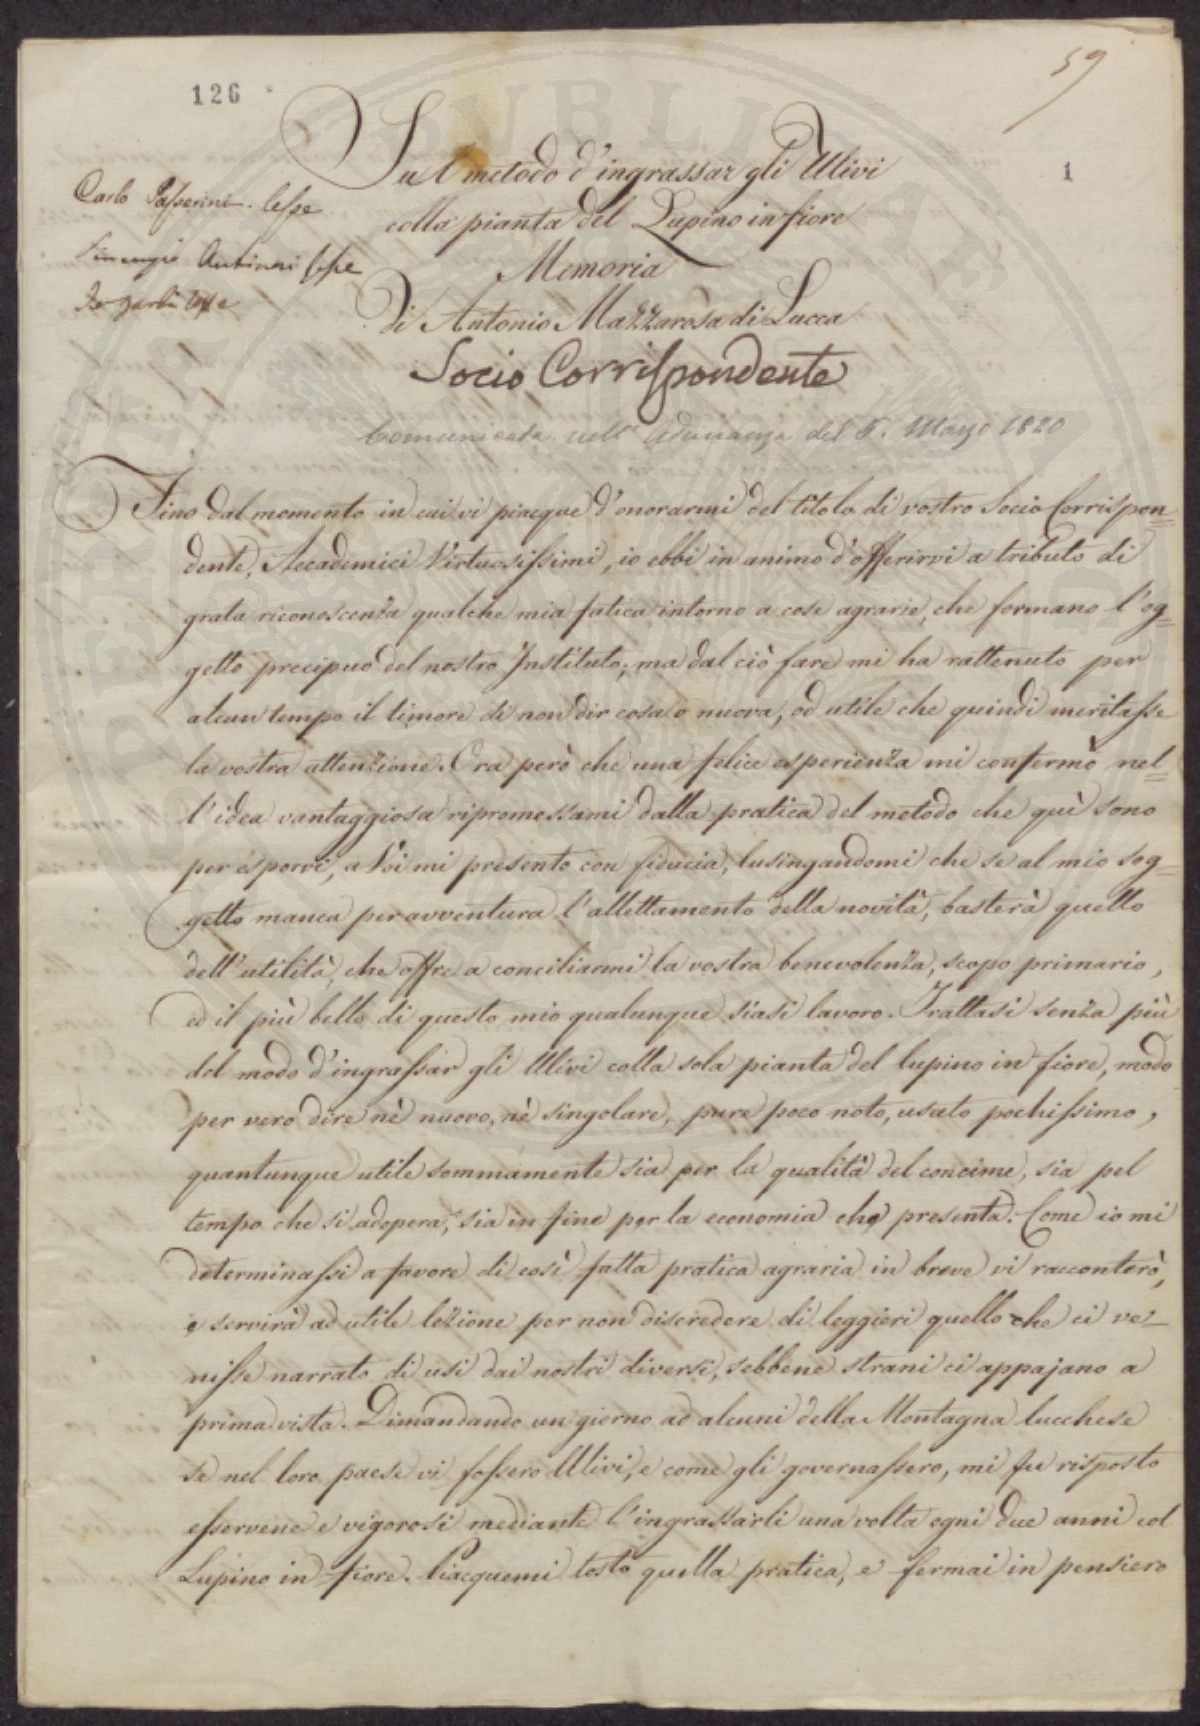 59
126
1
Sul metodo d'ingrassar gli Ulivi
colla pianta del Lupino in fiore
Memoria
di Antonio Mazzarosa di Lucca
Socio Corrispondente
Carlo Passerini lesse
Antinori lesse
lesse
Comunicata nell' Adunanza del 5. Marzo 1820
Fino dal momento in cui vi piacque d'onorarmi del titolo di vostro Socio Corrispon=
dente, Accademici Virtuosissimi, io ebbi in animo d'offerirvi a tributo di
grata riconoscenza qualche mia fatica intorno a cose agrarie, che formano l'og=
getto precipuo del nostro Instituto; ma dal ciò fare mi ha rattenuto per
alcun tempo il timore di non dir cosa o nuova, od utile che quindi meritasse
la vostra attenzione. Ora però che una felice esperienza mi confermò nel=
l'idea vantaggiosa ripromessami dalla pratica del metodo che quì sono
per esporvi, a Voi mi presento con fiducia, lusingandomi che se al mio sog=
getto manca peravventura l'allettamento della novità, basterà quello
dell'utilità, che offre a conciliarmi la vostra benevolenza, scopo primario,
ed il più bello di questo mio qualunque siasi lavoro. Trattasi senza più
del modo d'ingrassar gli Ulivi colla sola pianta del lupino in fiore, modo
per vero dire nè nuovo, nè singolare, pure poco noto, usato pochissimo,
quantunque utile sommamente sia per la qualità del concime, sia pel
tempo che si adopera, sia in fine per la economia che presenta. Come io mi
determinassi a favore di così fatta pratica agraria in breve vi racconterò,
e servirà ad utile lezione per non discredere di leggieri quello che ci ve=
nisse narrato di usi dai nostri diversi, sebbene strani ci appajano a
prima vista. Dimandando un giorno ad alcuni della Montagna lucchese
se nel loro paese vi fossero Ulivi, e come gli governassero, mi fu risposto
esservene e vigorosi mediante l'ingrassarli una volta ogni due anni col
Lupino in fiore. Piacquemi tosto quella pratica, e fermai in pensiero